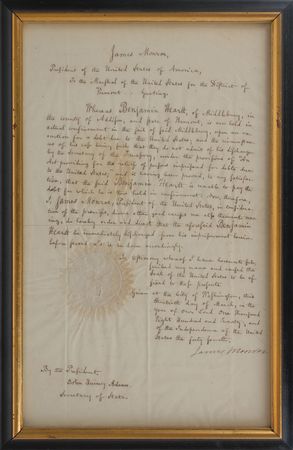 James Monroe,
President of the United States of America,
To the Marshal of the United States for the District of
Vermont.. Greeting.
Whereas Benjamin Heartt, of Middlebury, in
the county of Addison, and state of Vermont, is now held in
actual confinement in the jail of said Middlebury, upon an ex-
ecution for a debt due to the United States, and the circumstan-
ces of his case being such that they do not admit of his discharge
by the Secretary of the Treasury, under the provisions of the
Act providing for the relief of persons imprisoned for debts due
to the United States; and it having been proved, to my satisfac-
tion, that the said Benjamin Heartt is unable to pay the
debt for which he is thus held in confinement: Now, therefore,
I, James Monroe, President of the United States, in considera-
tion of the premises, divers other good causes me also thereunto mov-
ing, do hereby order and direct that the aforesaid Benjamin
Heartt be immediately discharged from his imprisonment
before
In testimony whereof I have hereunto sub-
scribed my name and caused the
seal of the United States to be af-
fixed to these presents.
Given at the City of Washington, this
thirtieth day of March, in the
year of our Lord One thousand
Eight Hundred and Twenty, and
of the Independence of the United
States the forty fourth.
James Monroe
By the President,
John Quincy Adams
Secretary of State.